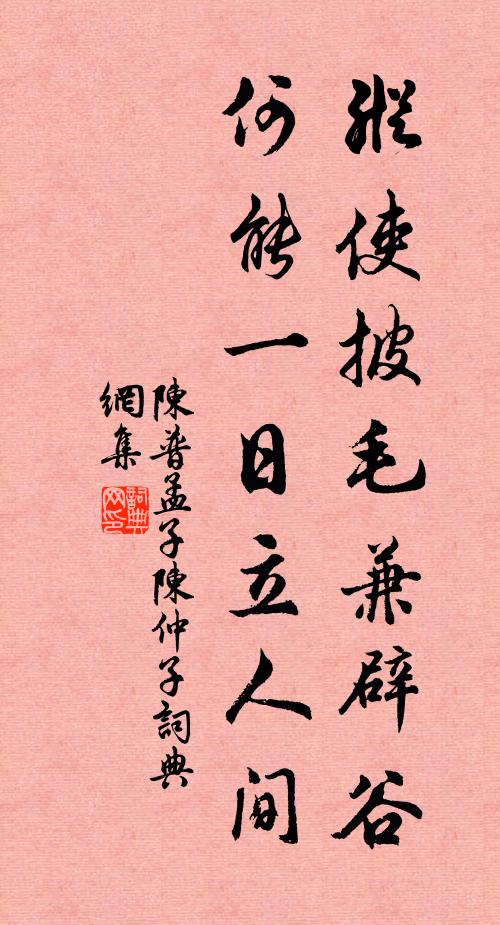 縱使披毛兼辟谷
何能一日立人间
陳普孟子陳仲子詞典
網集
詞典
网印